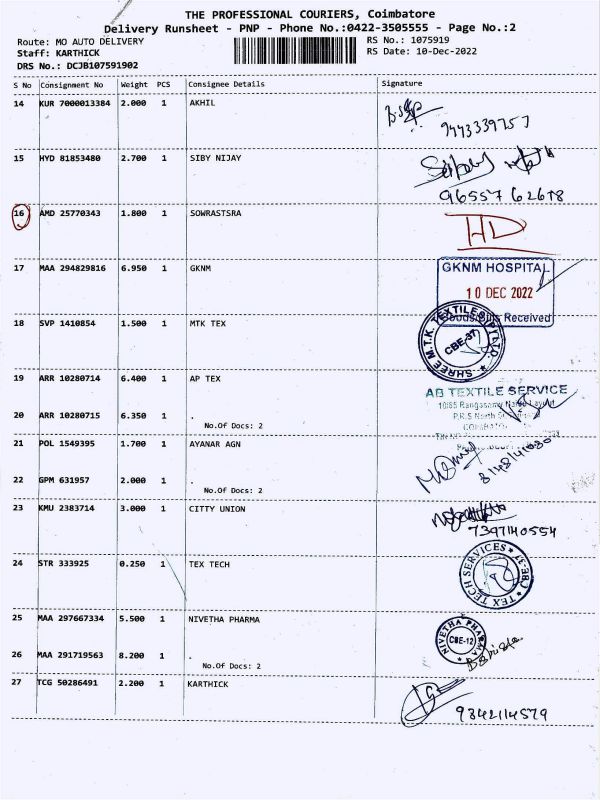 THE PROFESSIONAL COURIERS, Coimbatore
Delivery Runsheet - PNP - Phone No.:0422-3505555 - Page No.:2
Route: MO AUTO DELIVERY
RS No.: 1075919
Staff: KARTHICK
RS Date: 10-Dec-2022
DRS No.: DCJB107591902
S No Consignment No Weight PCS Consignee Details Signature
14 KUR 7000013384 2.000 1 AKHIL
9443339757
15 HYD 81853480 2.700 1 SIBY NIJAY
96557 62678
16 AMD 25770343 1.800 1 SOWRASTSRA
HD
17 MAA 294829816 6.950 1 GKNM
GKNM HOSPITAL
10 DEC 2022
Received
18 SVP 1410854 1.500 1 MTK TEX
SHREE M.T.K. TEXTILES P LTD.
CBE-37
19 ARR 10280714 6.400 1 AP TEX
AB TEXTILE SERVICE
10/85 Rangasamy Layout
P.R.S North
20 ARR 10280715 6.350 1 .
No.Of Docs: 2
21 POL 1549395 1.700 1 AYANAR AGN
8148141030
22 GPM 631957 2.000 1 .
No.Of Docs: 2
23 KMU 2383714 3.000 1 CITTY UNION
7397140554
24 STR 333925 0.250 1 TEX TECH
TEX TECH SERVICES * CBE-37 *
25 MAA 297667334 5.500 1 NIVETHA PHARMA
NIVETHA PHARMA
CBE-12
26 MAA 291719563 8.200 1 .
No.Of Docs: 2
27 TCG 50286491 2.200 1 KARTHICK
9342114579